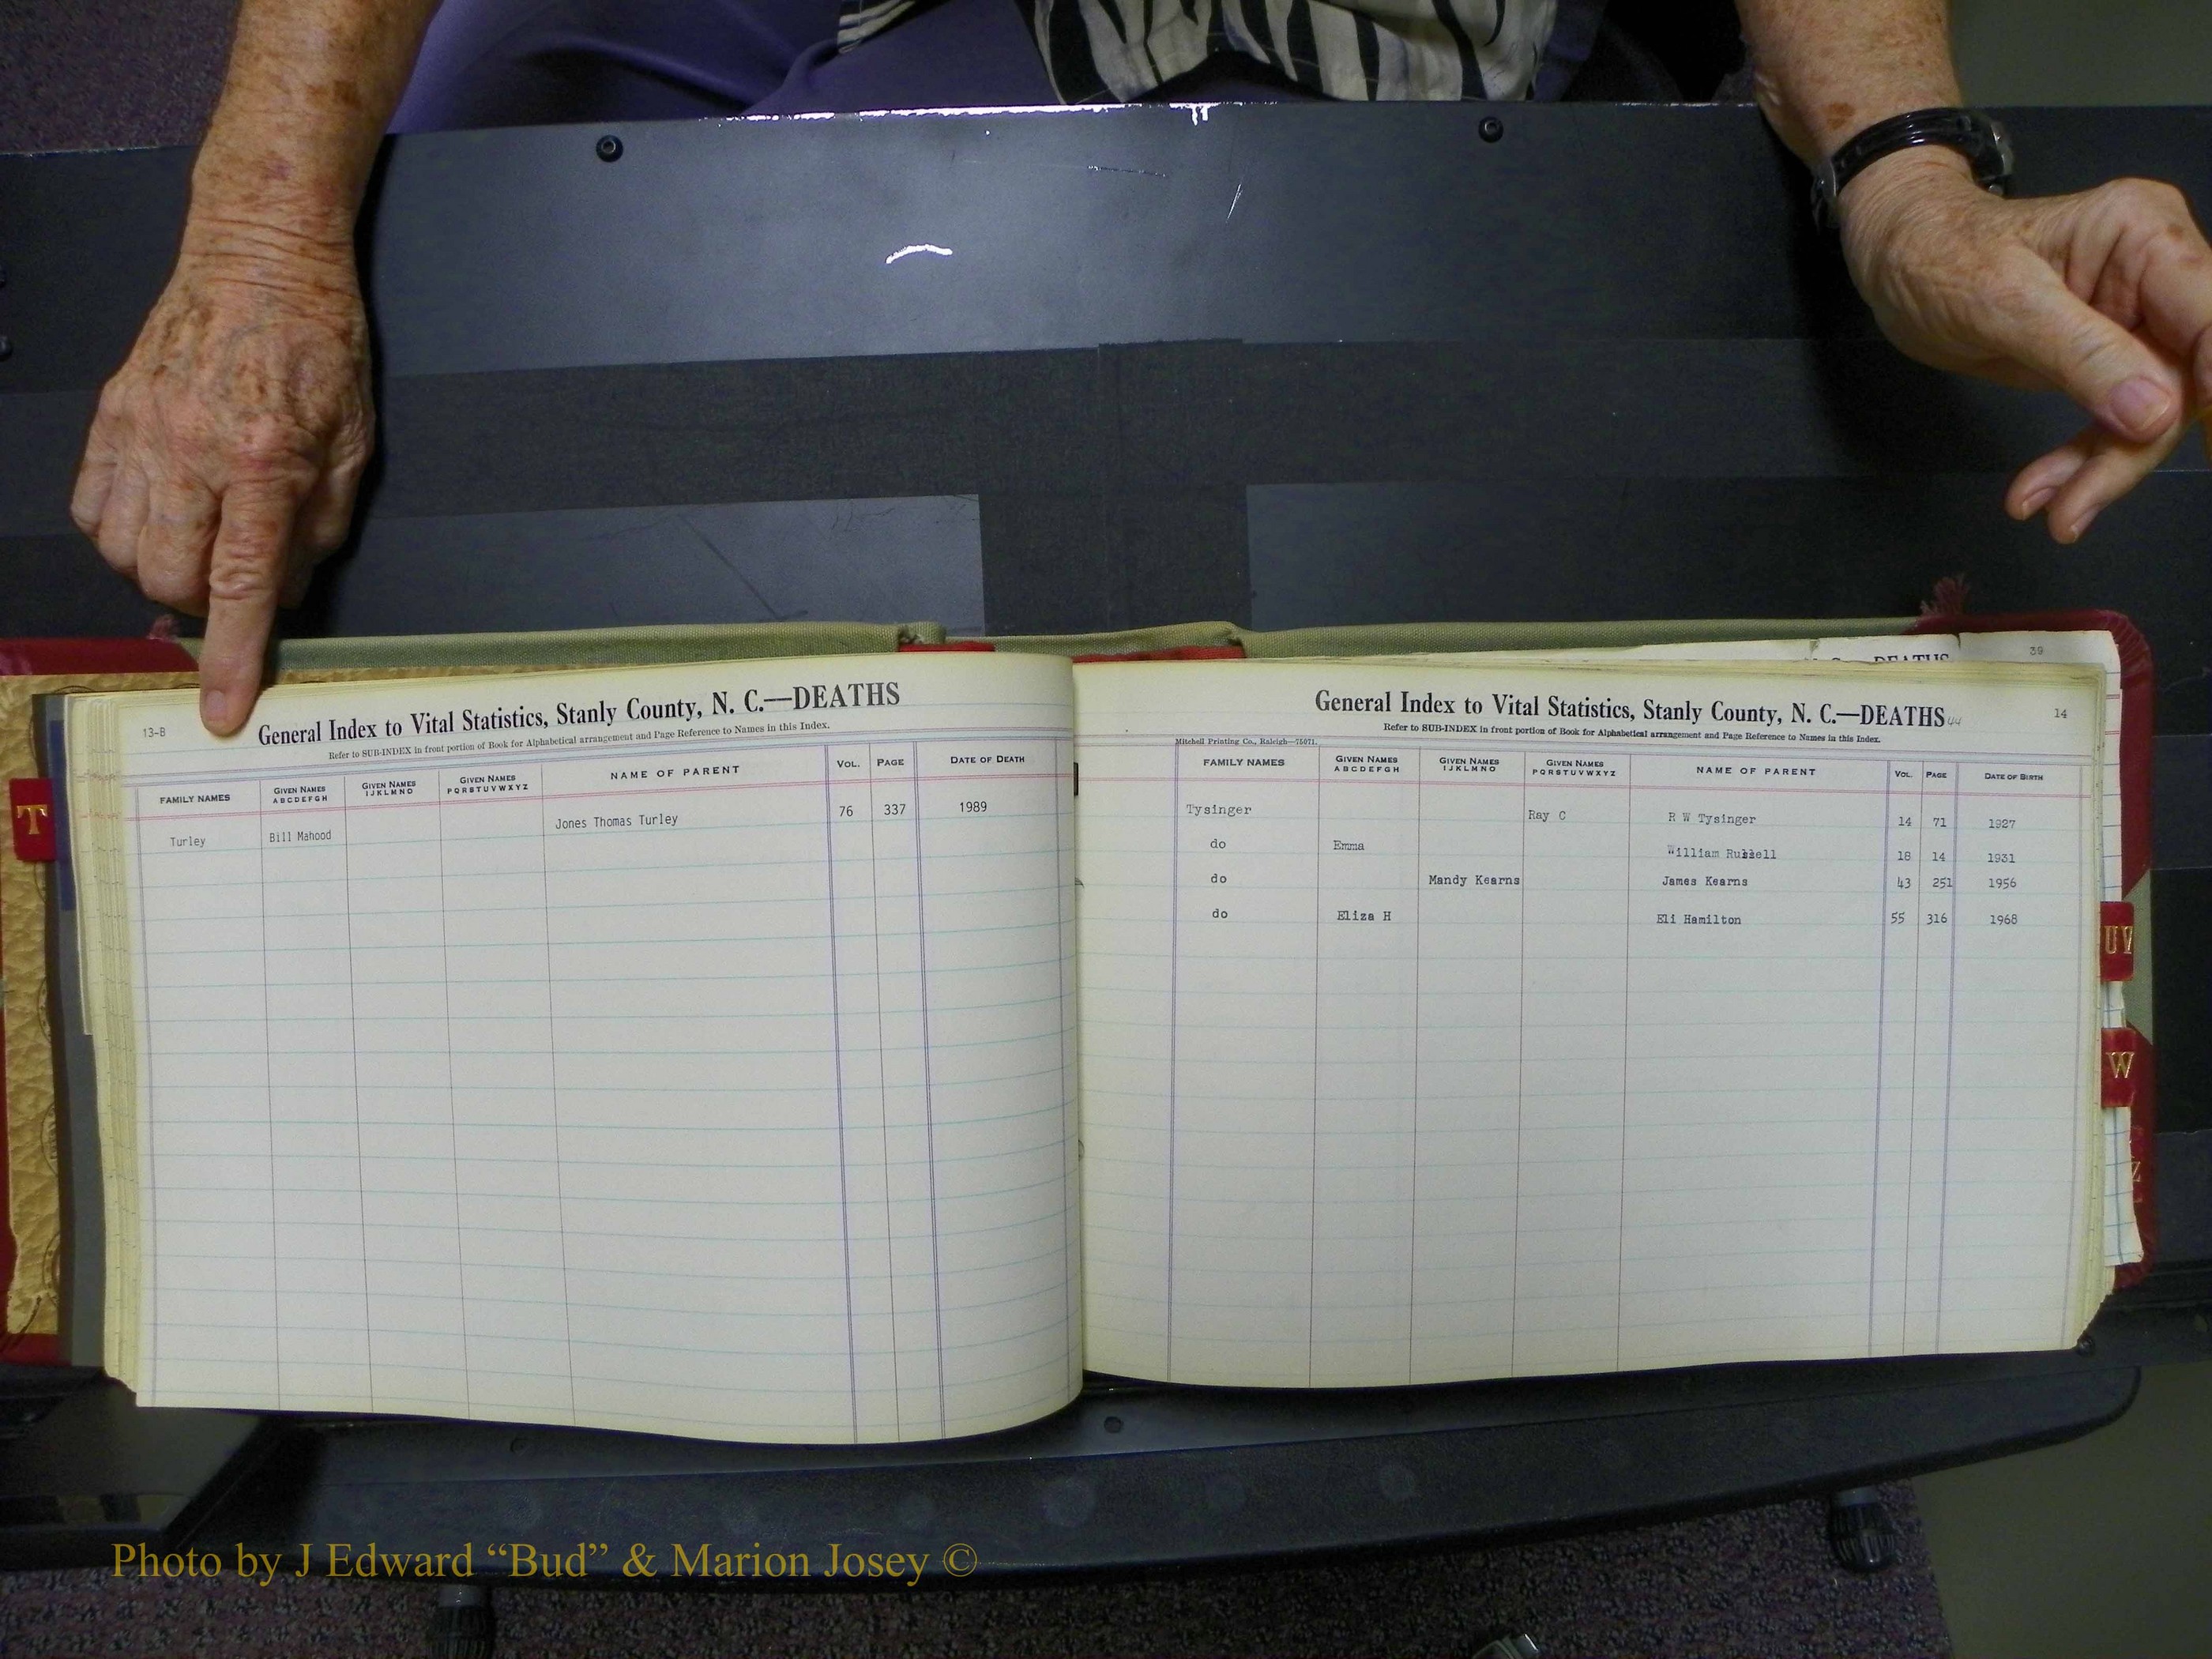 13-B
General Index to Vital Statistics, Stanly County, N. C.—DEATHS
Refer to SUB-INDEX in front portion of Book for Alphabetical arrangement and Page Reference to Names in this Index.
FAMILY NAMES GIVEN NAMES ABCDEFGH GIVEN NAMES IJKLMNO GIVEN NAMES PQRSTUVWXYZ NAME OF PARENT VOL. PAGE DATE OF DEATH
Turley Bill Mahood Jones Thomas Turley 76 337 1989
T
DEATHS
39
General Index to Vital Statistics, Stanly County, N. C.—DEATHS 44
14
Refer to SUB-INDEX in front portion of Book for Alphabetical arrangement and Page Reference to Names in this Index.
Mitchell Printing Co., Raleigh—75071.
FAMILY NAMES GIVEN NAMES ABCDEFGH GIVEN NAMES IJKLMNO GIVEN NAMES PQRSTUVWXYZ NAME OF PARENT VOL. PAGE DATE OF BIRTH
Tysinger Ray C R W Tysinger 14 71 1927
do Emma William Russell 18 14 1931
do Mandy Kearns James Kearns 43 251 1956
do Eliza H Eli Hamilton 55 316 1968
UV
W
Z
Photo by J Edward “Bud” & Marion Josey ©